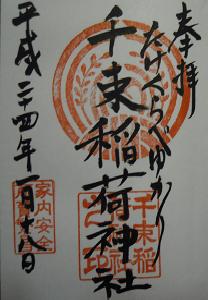 奉拝
たけくらべゆかり
千束稲荷神社
平成二十四年一月十八日
千束稲
家内安全